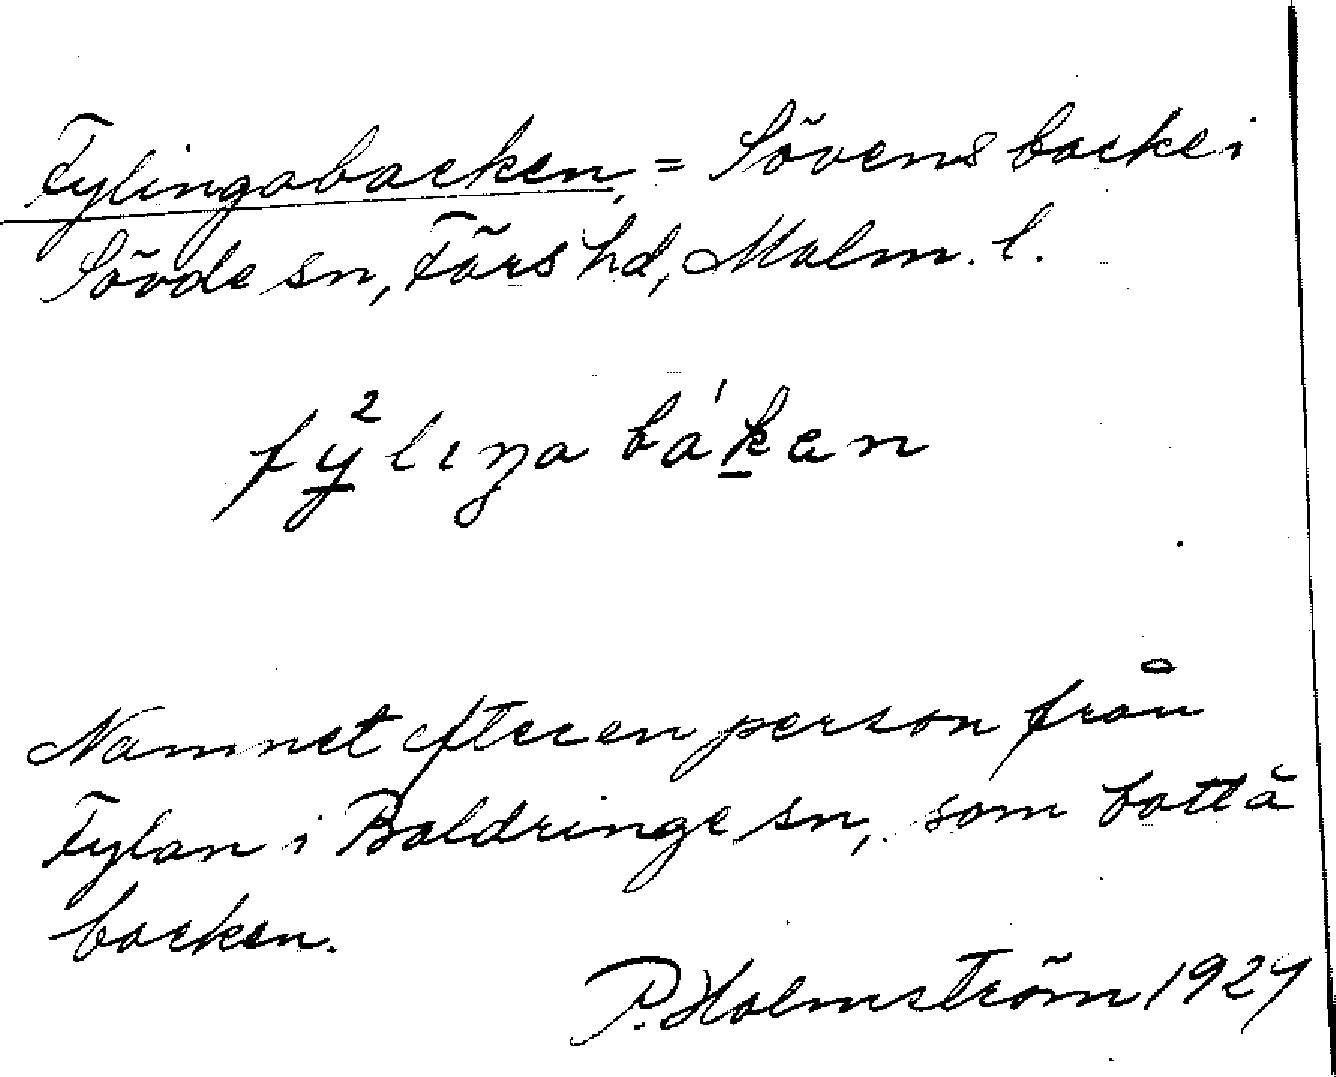 Fylingabacken, = Sövens backe i
Sövde sn, Färs hd, Malm. l.
fy²lıŋa ba'kan
Namnet efter en person från
Fylan i Baldringe sn, som bott å
backen.
P. Holmström 1927